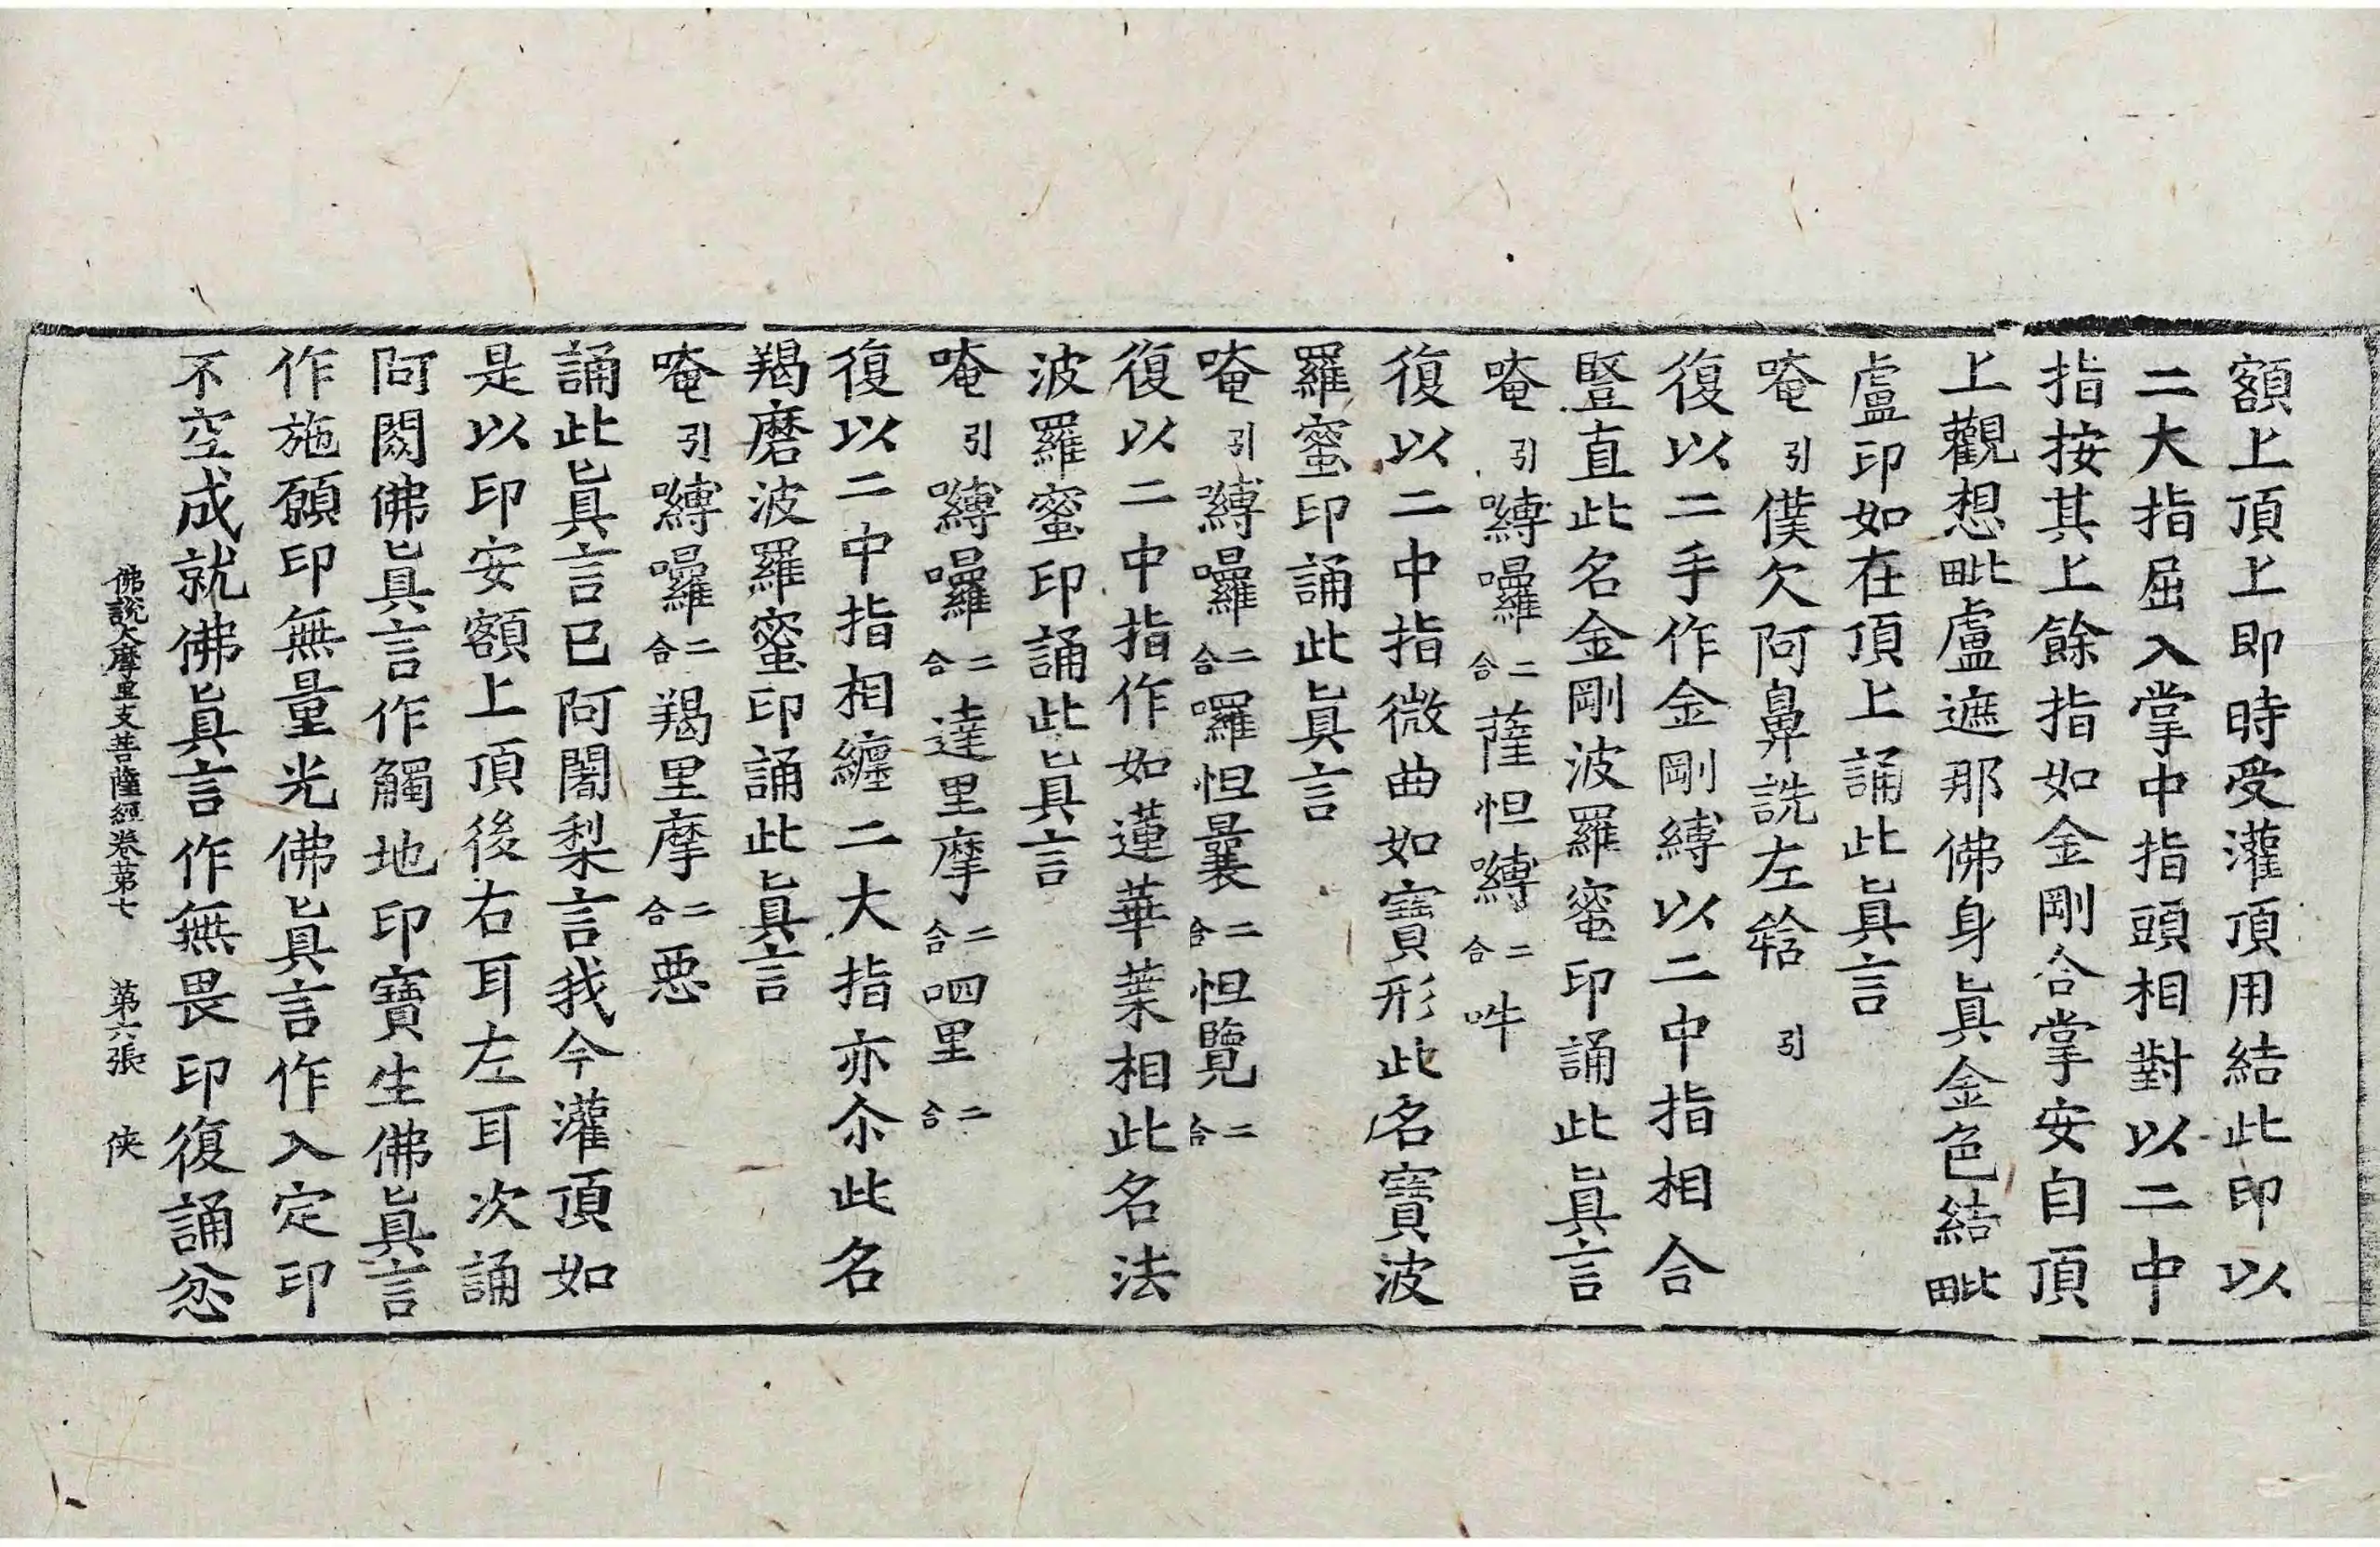 額上頂上即時受灌頂用結此印以
二大指屈入掌中指頭相對以二中
指按其上餘指如金剛合掌安自頂
上觀想毗盧遮那佛身眞金色結毗
盧印如在頂上誦此眞言
唵引僕欠阿鼻詵左𤚥引
復以二手作金剛縛以二中指相合
豎直此名金剛波羅蜜印誦此眞言
唵引嚩囉二合薩怛嚩二合吽
復以二中指微曲如寶形此名寶波
羅蜜印誦此眞言
唵引嚩囉二合囉怛曩二合怛覽二合
復以二中指作如蓮華葉相此名法
波羅蜜印誦此眞言
唵引嚩囉二合達里摩二合呬里二合
復以二中指相纏二大指亦尒此名
羯磨波羅蜜印誦此眞言
唵引嚩囉二合羯里摩二合惡
誦此眞言已阿闍梨言我今灌頂如
是以印安額上頂後右耳左耳次誦
阿閦佛眞言作觸地印寶生佛眞言
作施願印無量光佛眞言作入定印
不空成就佛眞言作無畏印復誦忿
佛說大摩里支菩薩經卷第七 第六張 俠